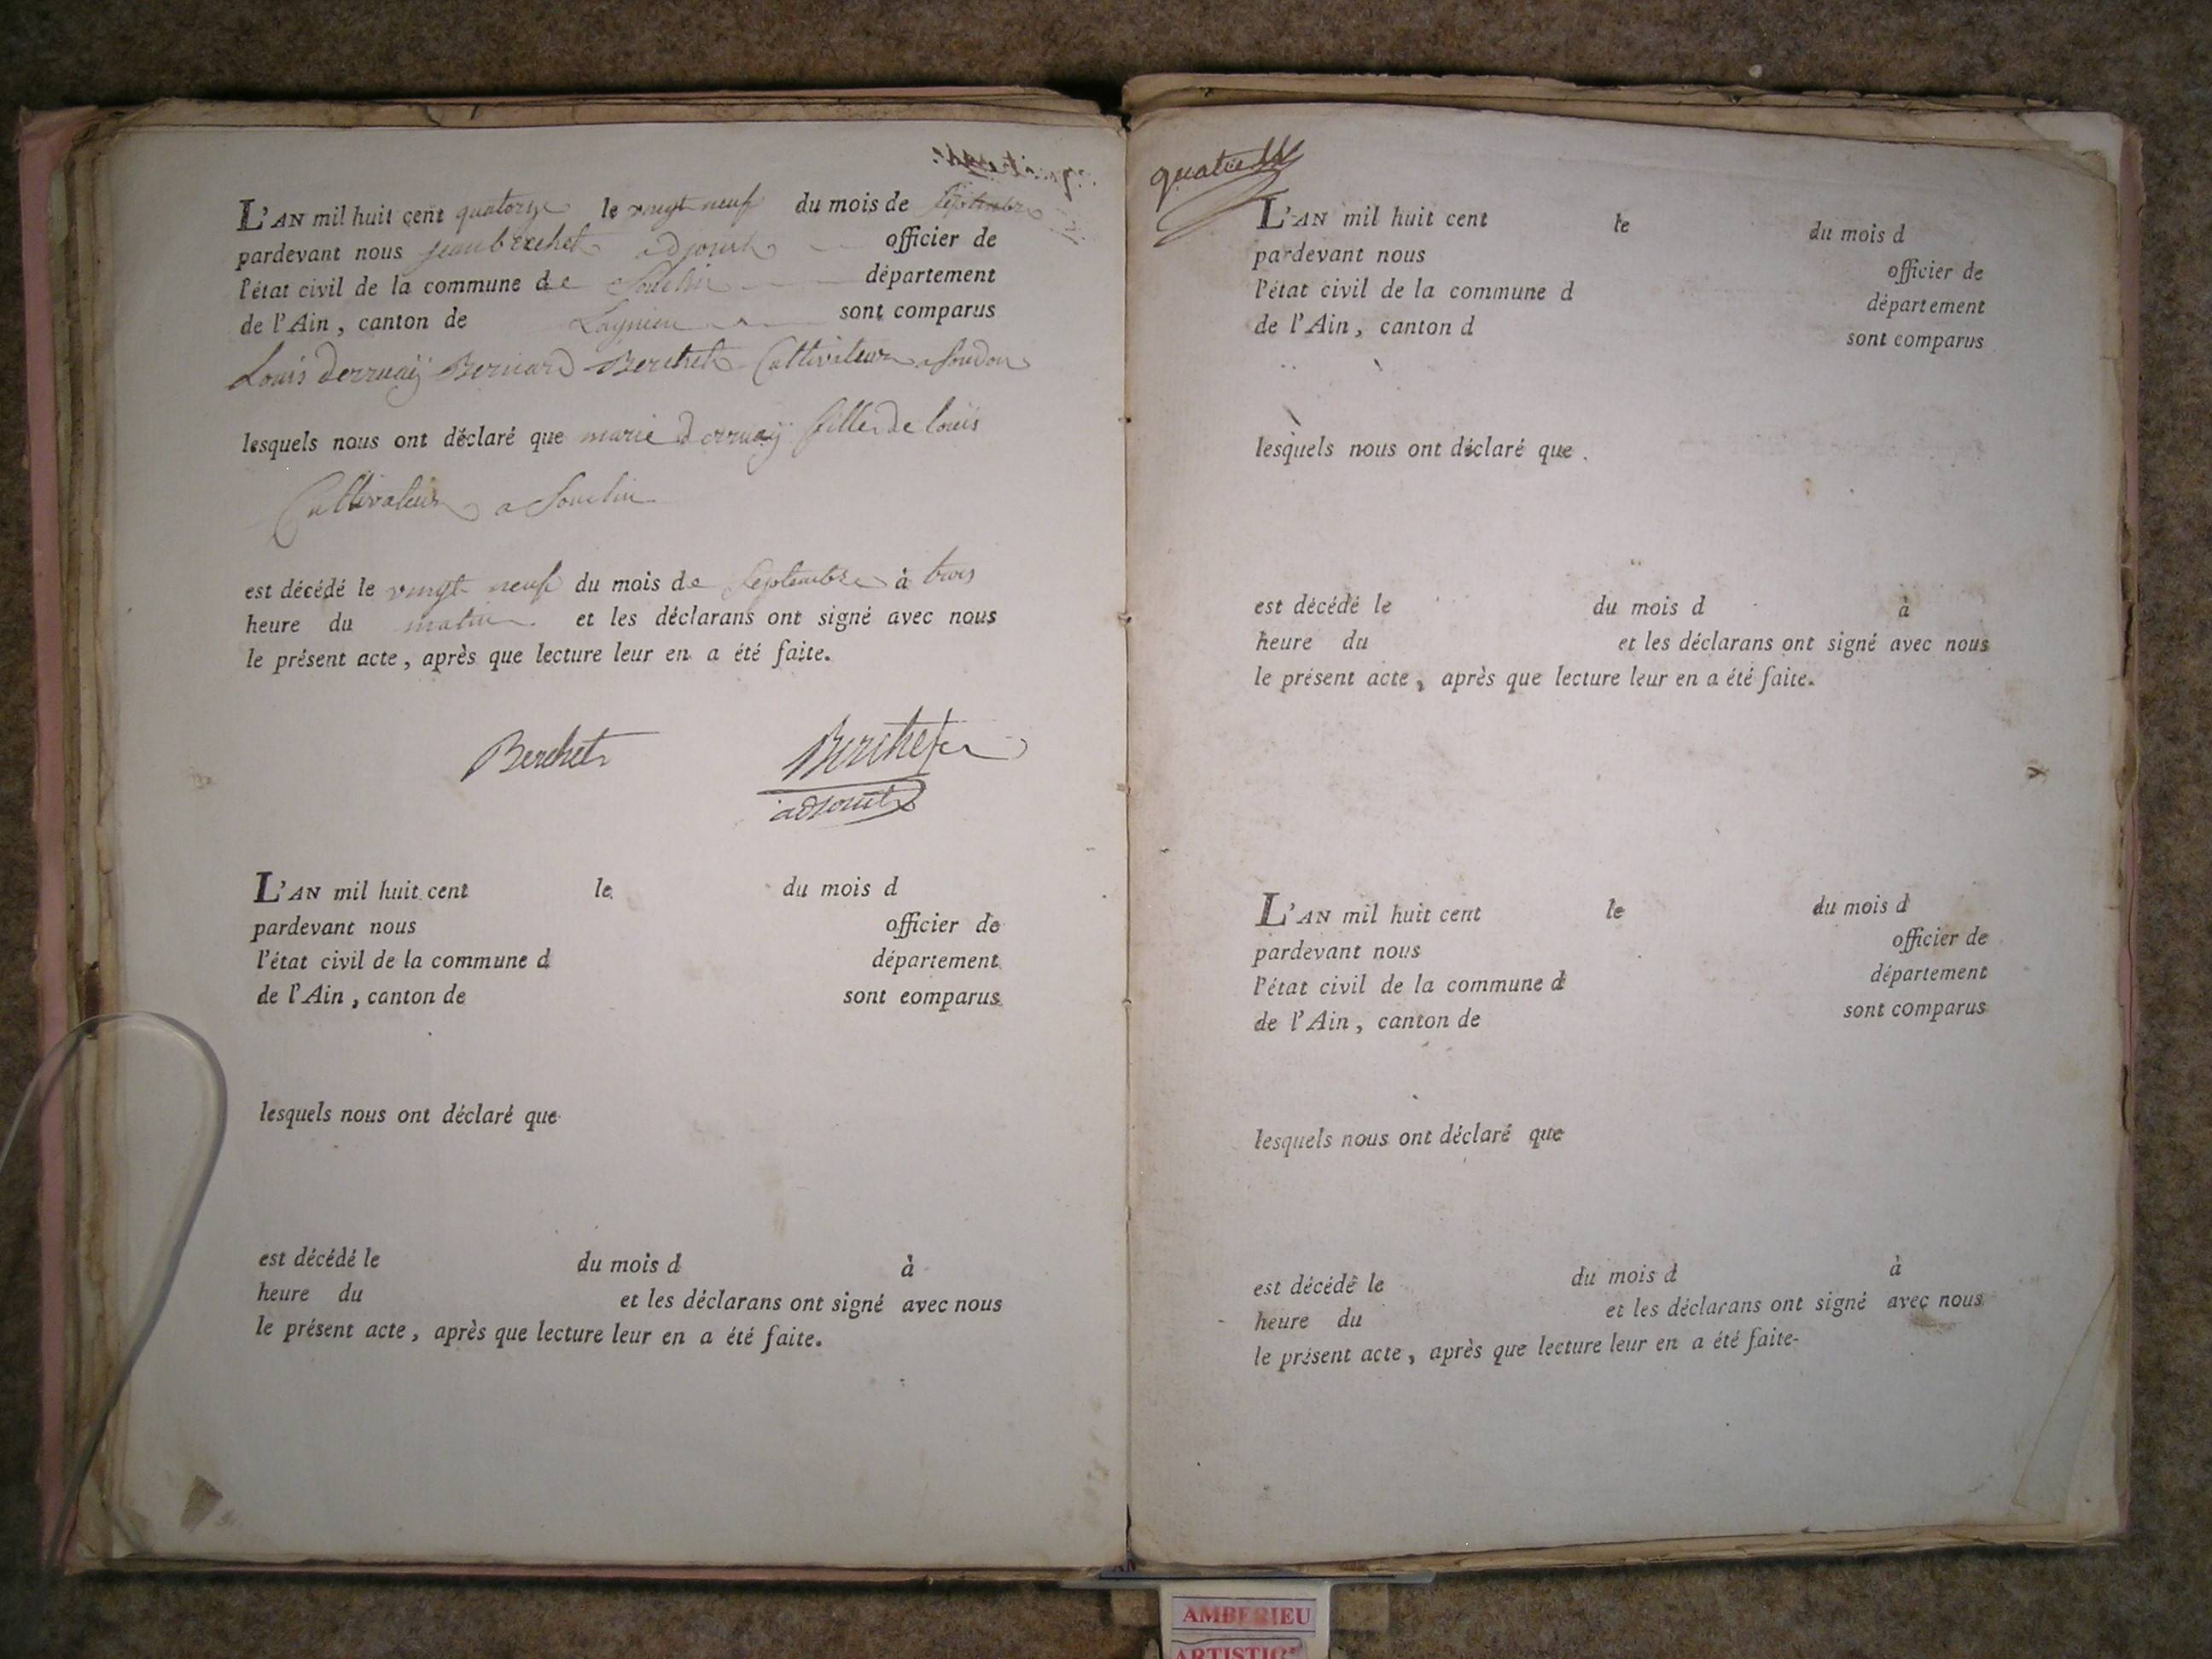 L'AN mil huit cent quatorze le vingt neuf du mois de Septembre
pardevant nous jean berchet adjoint officier de
l'état civil de la commune de Souclin département
de l'Ain, canton de Lagnieu sont comparus
Louis derruaÿ Bernard Berchet Cultivateur a Soudon
lesquels nous ont déclaré que marie derruaÿ fille de louis
Cultivateur a Souclin
est décédé le vingt neuf du mois de Septembre à trois
heure du matin et les déclarans ont signé avec nous
le présent acte, après que lecture leur en a été faite.
Berchet Berchet
adjoint
L'AN mil huit cent le du mois d
pardevant nous officier de
l'état civil de la commune d département
de l'Ain, canton de sont eomparus
lesquels nous ont déclaré que
est décédé le du mois d à
heure du et les déclarans ont signé avec nous
le présent acte, après que lecture leur en a été faite.
quatre
L'AN mil huit cent le du mois d
pardevant nous officier de
l'état civil de la commune d département
de l'Ain, canton d sont comparus
lesquels nous ont déclaré que
est décédé le du mois d à
heure du et les déclarans ont signé avec nous
le présent acte, après que lecture leur en a été faite.
L'AN mil huit cent le du mois d
pardevant nous officier de
l'état civil de la commune d département
de l'Ain, canton de sont comparus
lesquels nous ont déclaré que
est décédé le du mois d à
heure du et les déclarans ont signé avec nous
le présent acte, après que lecture leur en a été faite
AMBERIEU